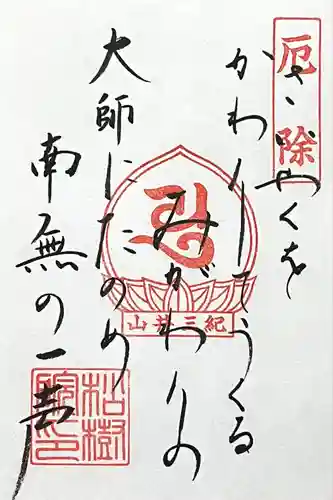 厄除
さゝやくを
かわりてうくる
みがわりの
大師にたのめ
南無の一声
紀三井山
松樹
院印